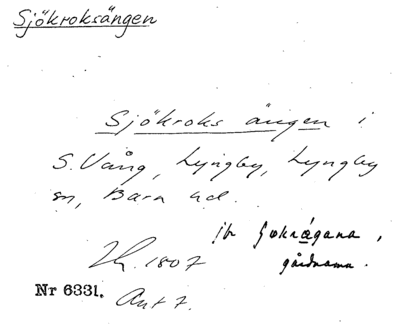 Sjökroksängen
Sjökroks ängen i
S. Vång, Lyngby, Lyngby
sn, Bara hd.
jfr Sjökroksagana,
gårdnamn.
1807
Nr 6331. Akt 7.